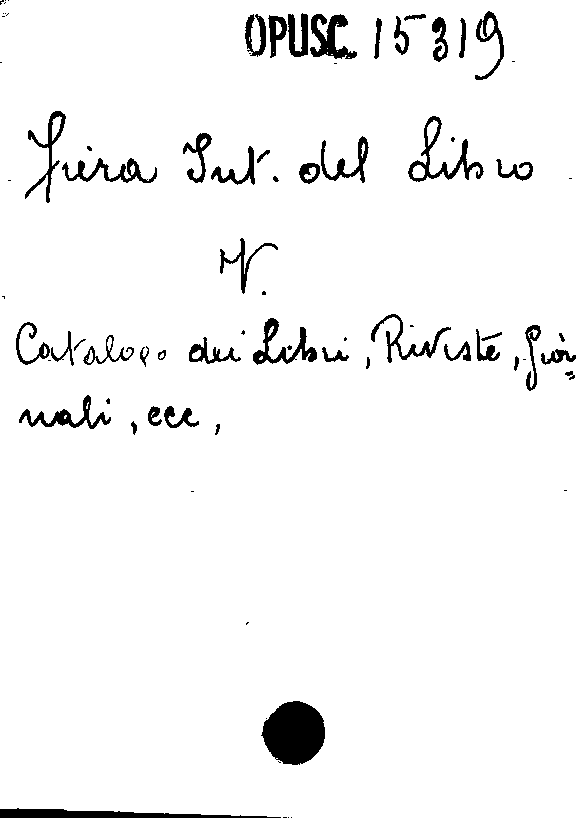 OPUSC. 15319
Fiera Int. del Libro
V.
Catalogo dei Libri, Riviste, gior=
nali, ecc,